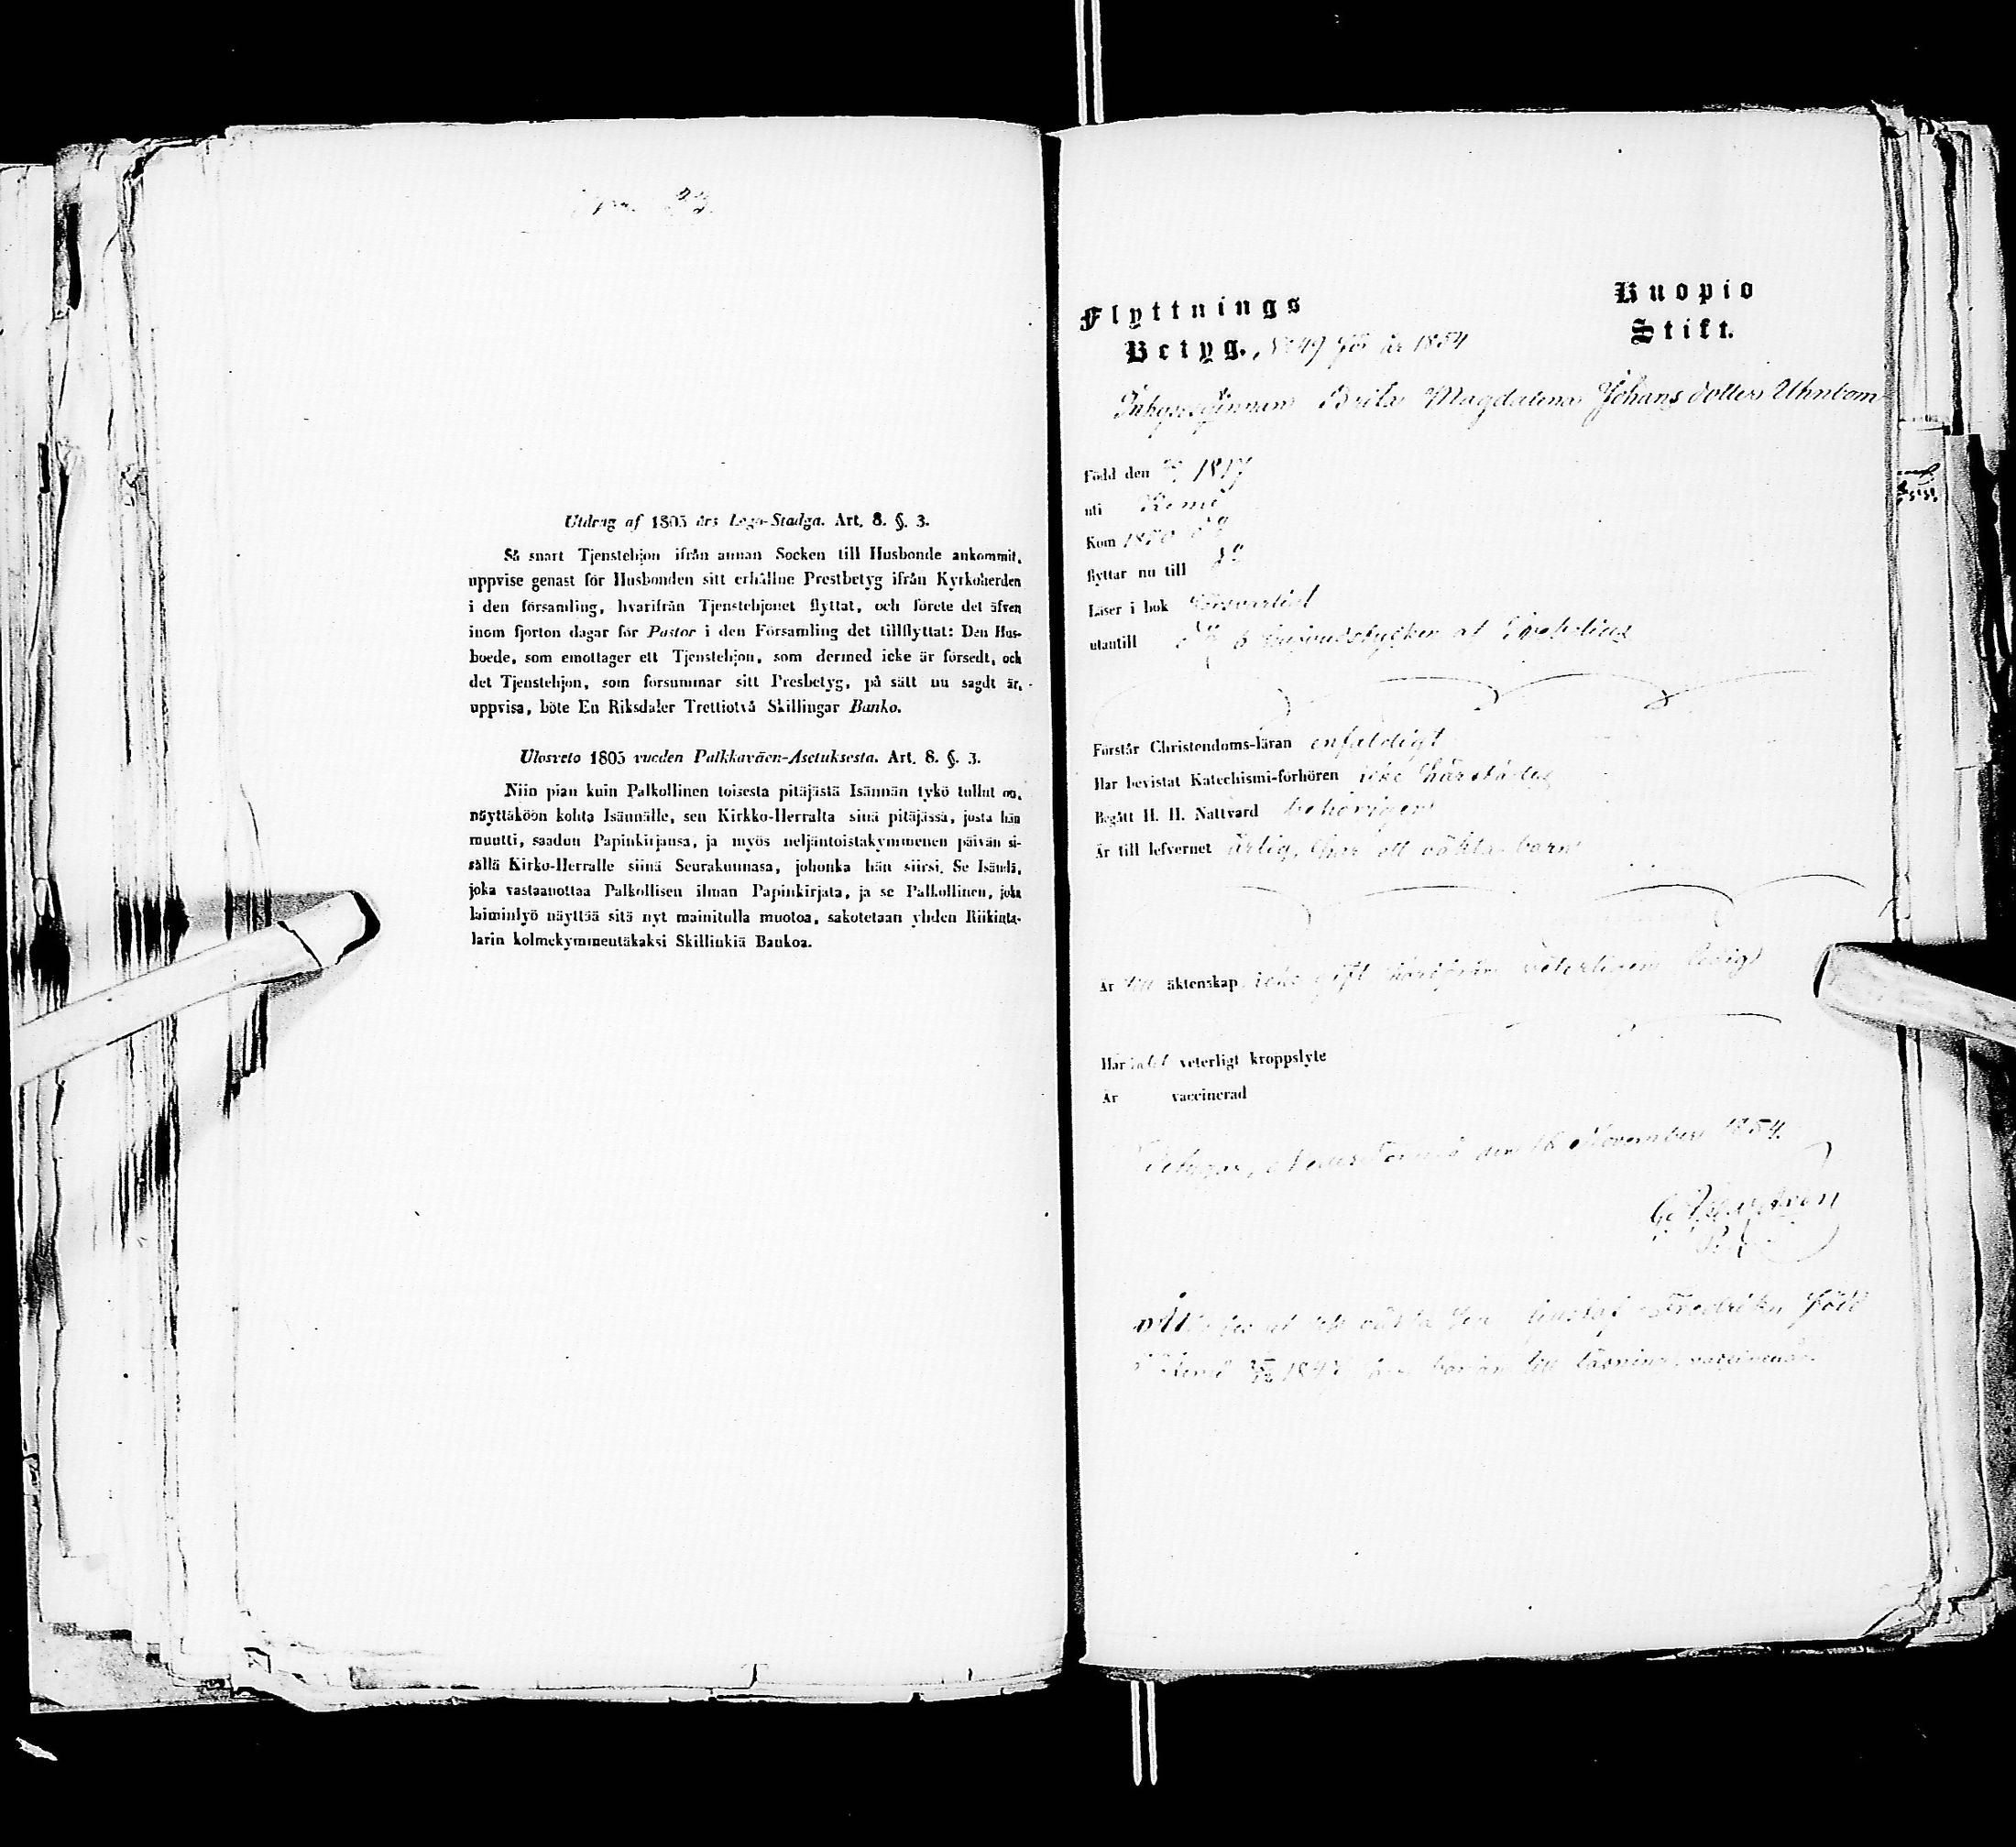 23.
Utdrag af 1805 års Lego-Stadga. Art. 8. §. 3.
Så snart Tjenstehjon ifrån annan Socken till Husbonde ankommit,
uppvise genast för Husbonden sitt erhållne Prestbetyg ifrån Kyrkoherden
i den församling, hvarifrån Tjenstehjonet flyttat, och förete det äfven
inom fjorton dagar för Pastor i den Församling det tillflyttat: Den Hus-
boede, som emottager ett Tjenstehjon, som dermed icke är försedt, och
det Tjenstehjon, som försummar sitt Presbetyg, på sätt nu sagdt är,
uppvisa, böte En Riksdaler Trettiotvå Skillingar Banko.
Ulosveto 1805 vuoden Palkkaväen-Asetuksesta. Art. 8. §. 3.
Niin pian kuin Palkollinen toisesta pitäjästä Isännän tykö tullut on,
näyttäköön kohta Isännälle, sen Kirkko-Herralta siinä pitäjässä, josta hän
muutti, saadun Papinkirjansa, ja myös neljäntoistakymmenen päivän si-
sällä Kirko-Herralle siinä Seurakunnasa, johonka hän siirsi. Se Isändä,
joka vastaanottaa Palkollisen ilman Papinkirjata, ja se Palkollinen, joka
laiminlyö näyttää sitä nyt mainitulla muotoa, sakotetaan yhden Riikinta-
larin kolmekymmentäkaksi Skillinkiä Bankoa.
Kuopio
Stift.
Flyttnings
Betyg. No 49 för år 1854
Brita Magdalena Johansdotter Uhnbom
född den 1817
uti Kemi
Kom
flyttar nu till
Läser i bok
utantill
Förstår Christendoms-läran enfaldigt
Har bevistat Katechismi-förhören icke härstädes
Begått H. H. Nattvard behörigen
Är till lefvernet ärlig, har ett oäkta barn
Är till äktenskap icke gift härifrån veterligen ledig
Har intet veterligt kroppslyte
Är vaccinerad
den 16 November 1854.
oäkta son Gustaf Fredrik född